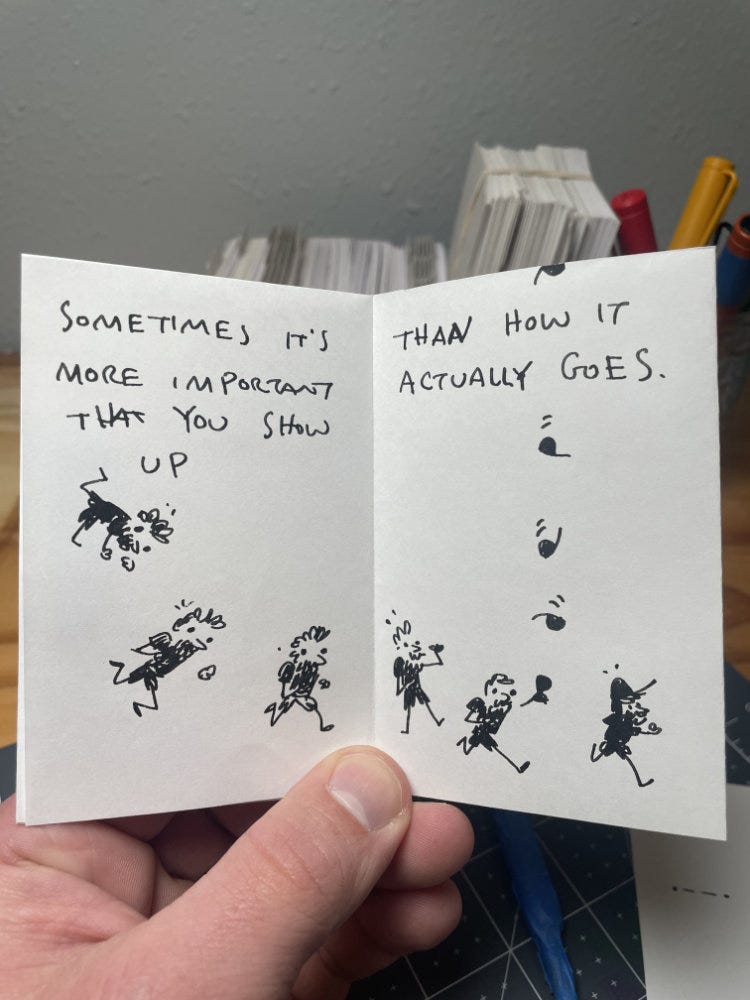 SOMETIMES IT'S
MORE IMPORTANT
THAT YOU SHOW
UP
THAN HOW IT
ACTUALLY GOES.